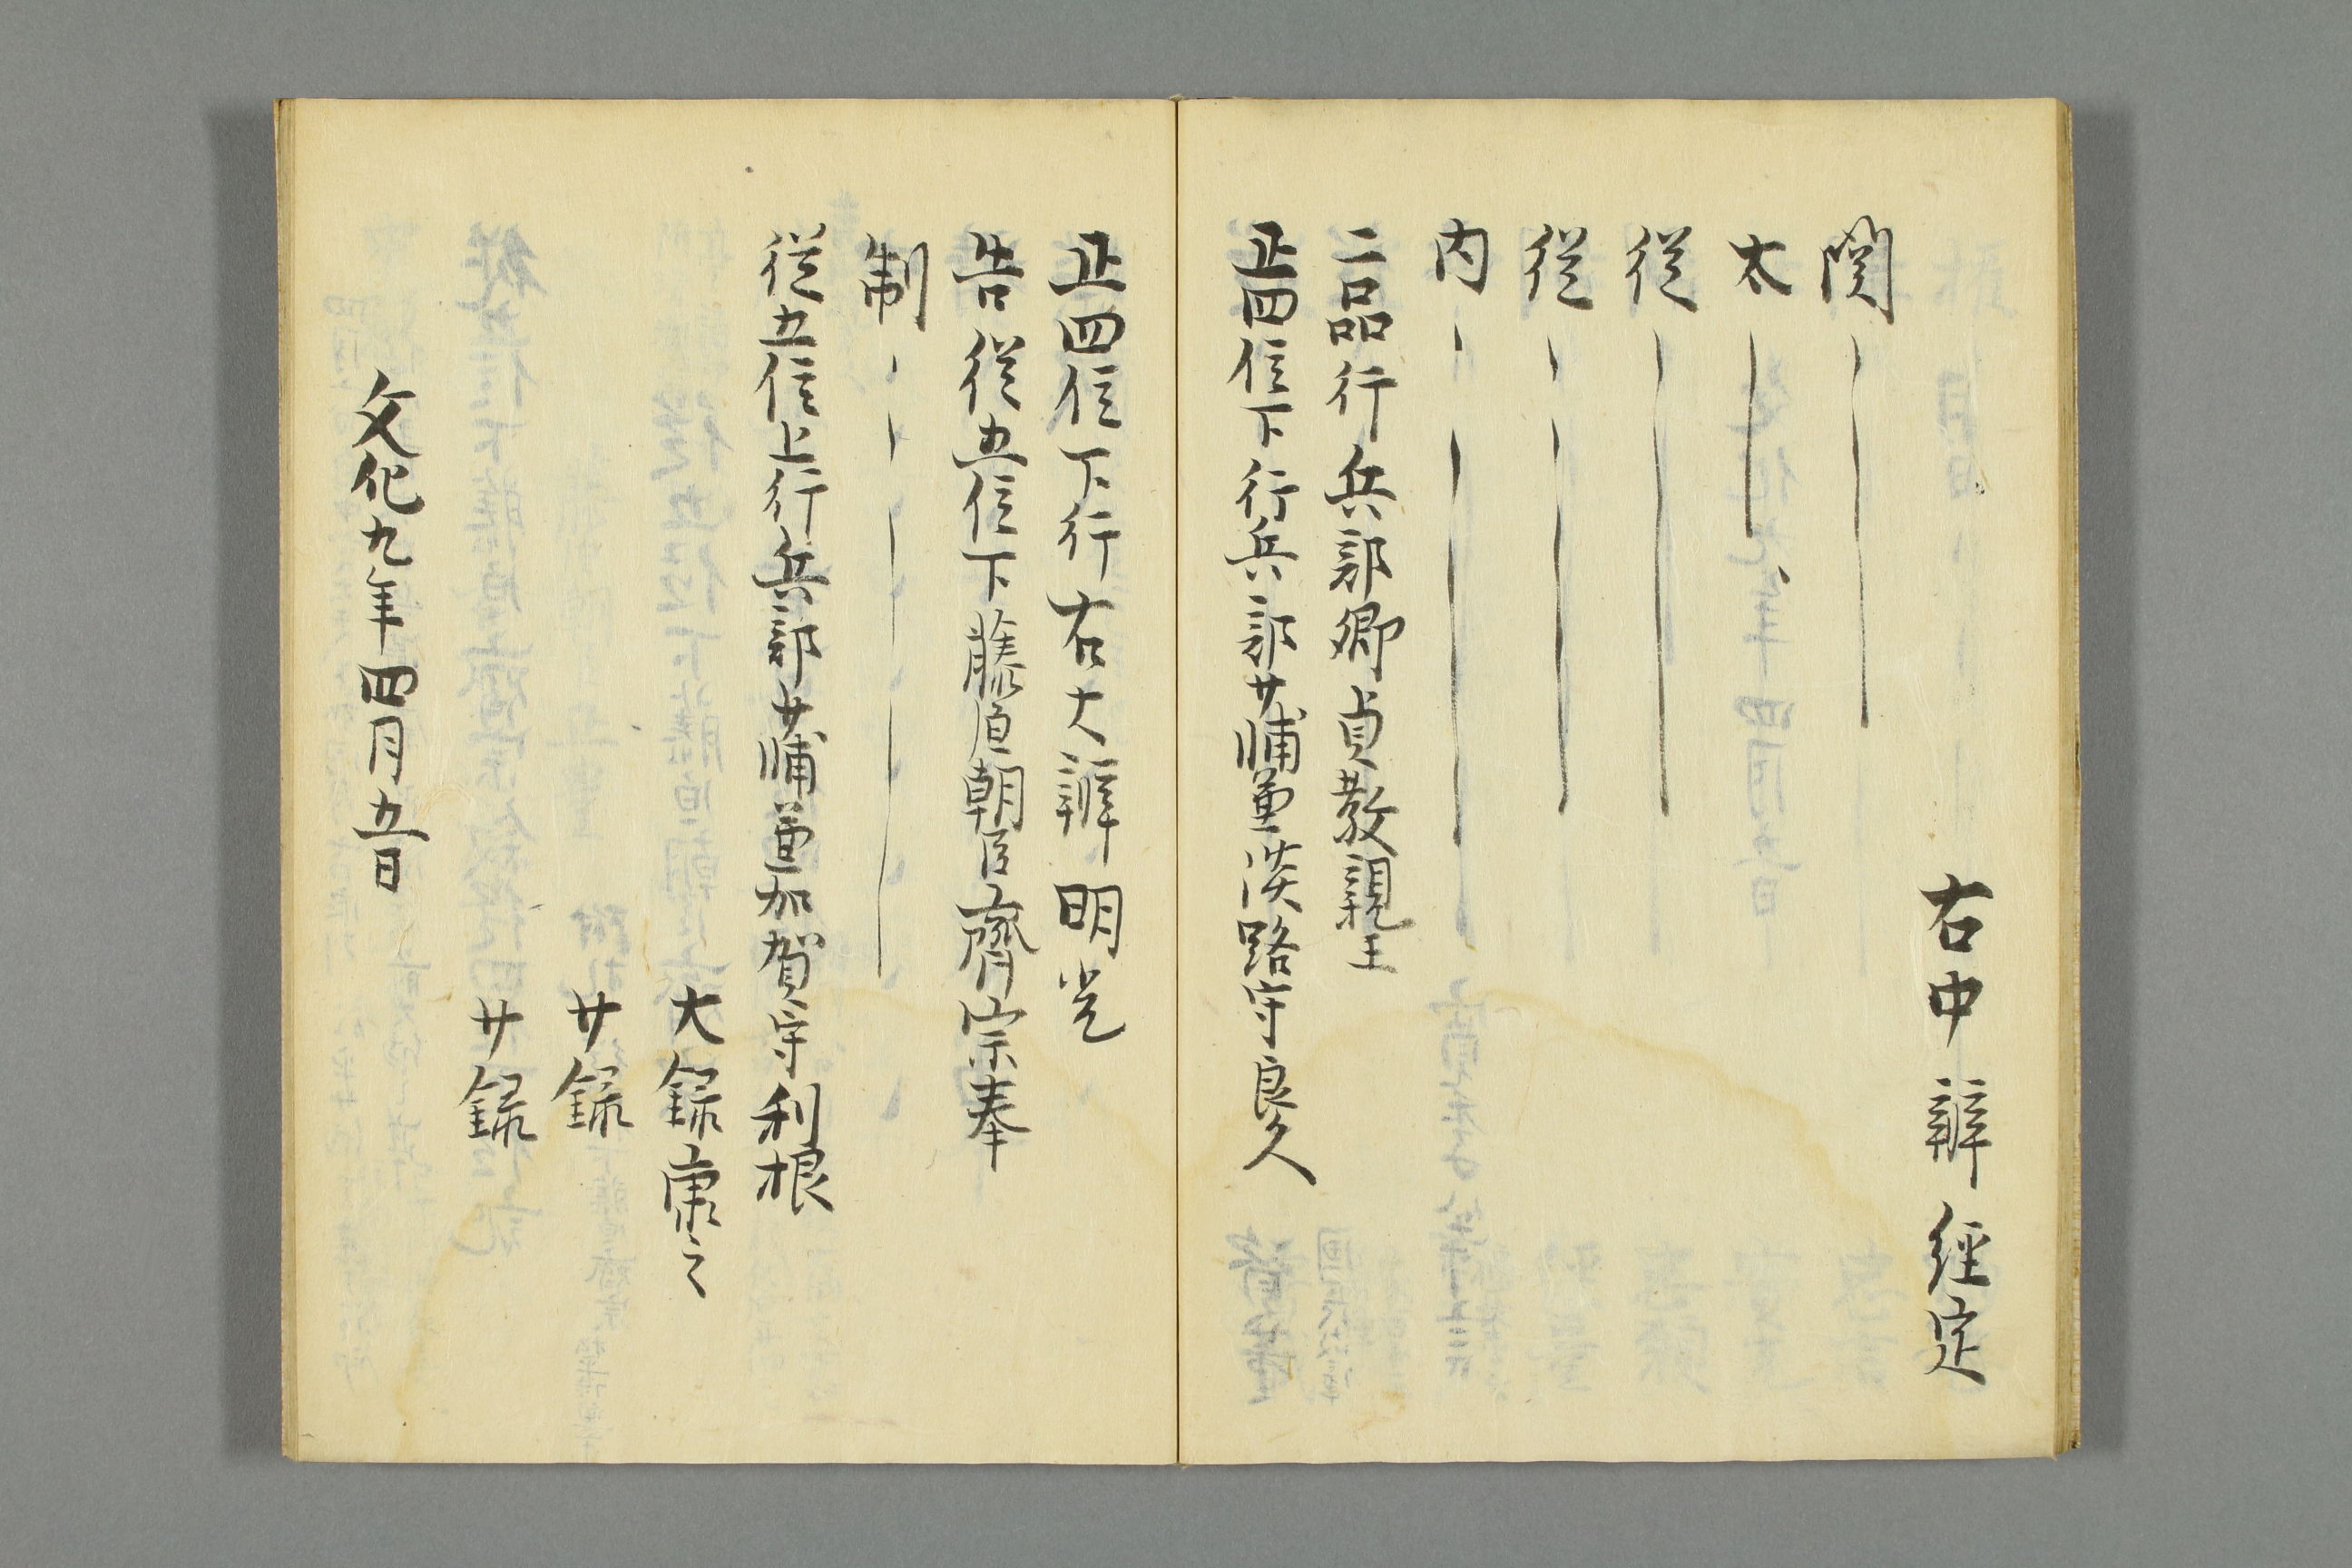 右中辨経定
関
太
従
従
内
二品行兵部卿貞敬親王
正四位下行兵部少輔兼淡路守良久
正四位下行右大辨明光
告従五位下藤原朝臣齊宗奉
制
従五位上行兵部少輔兼加賀守利根
大録康之
少録
少録
文化九年四月五日